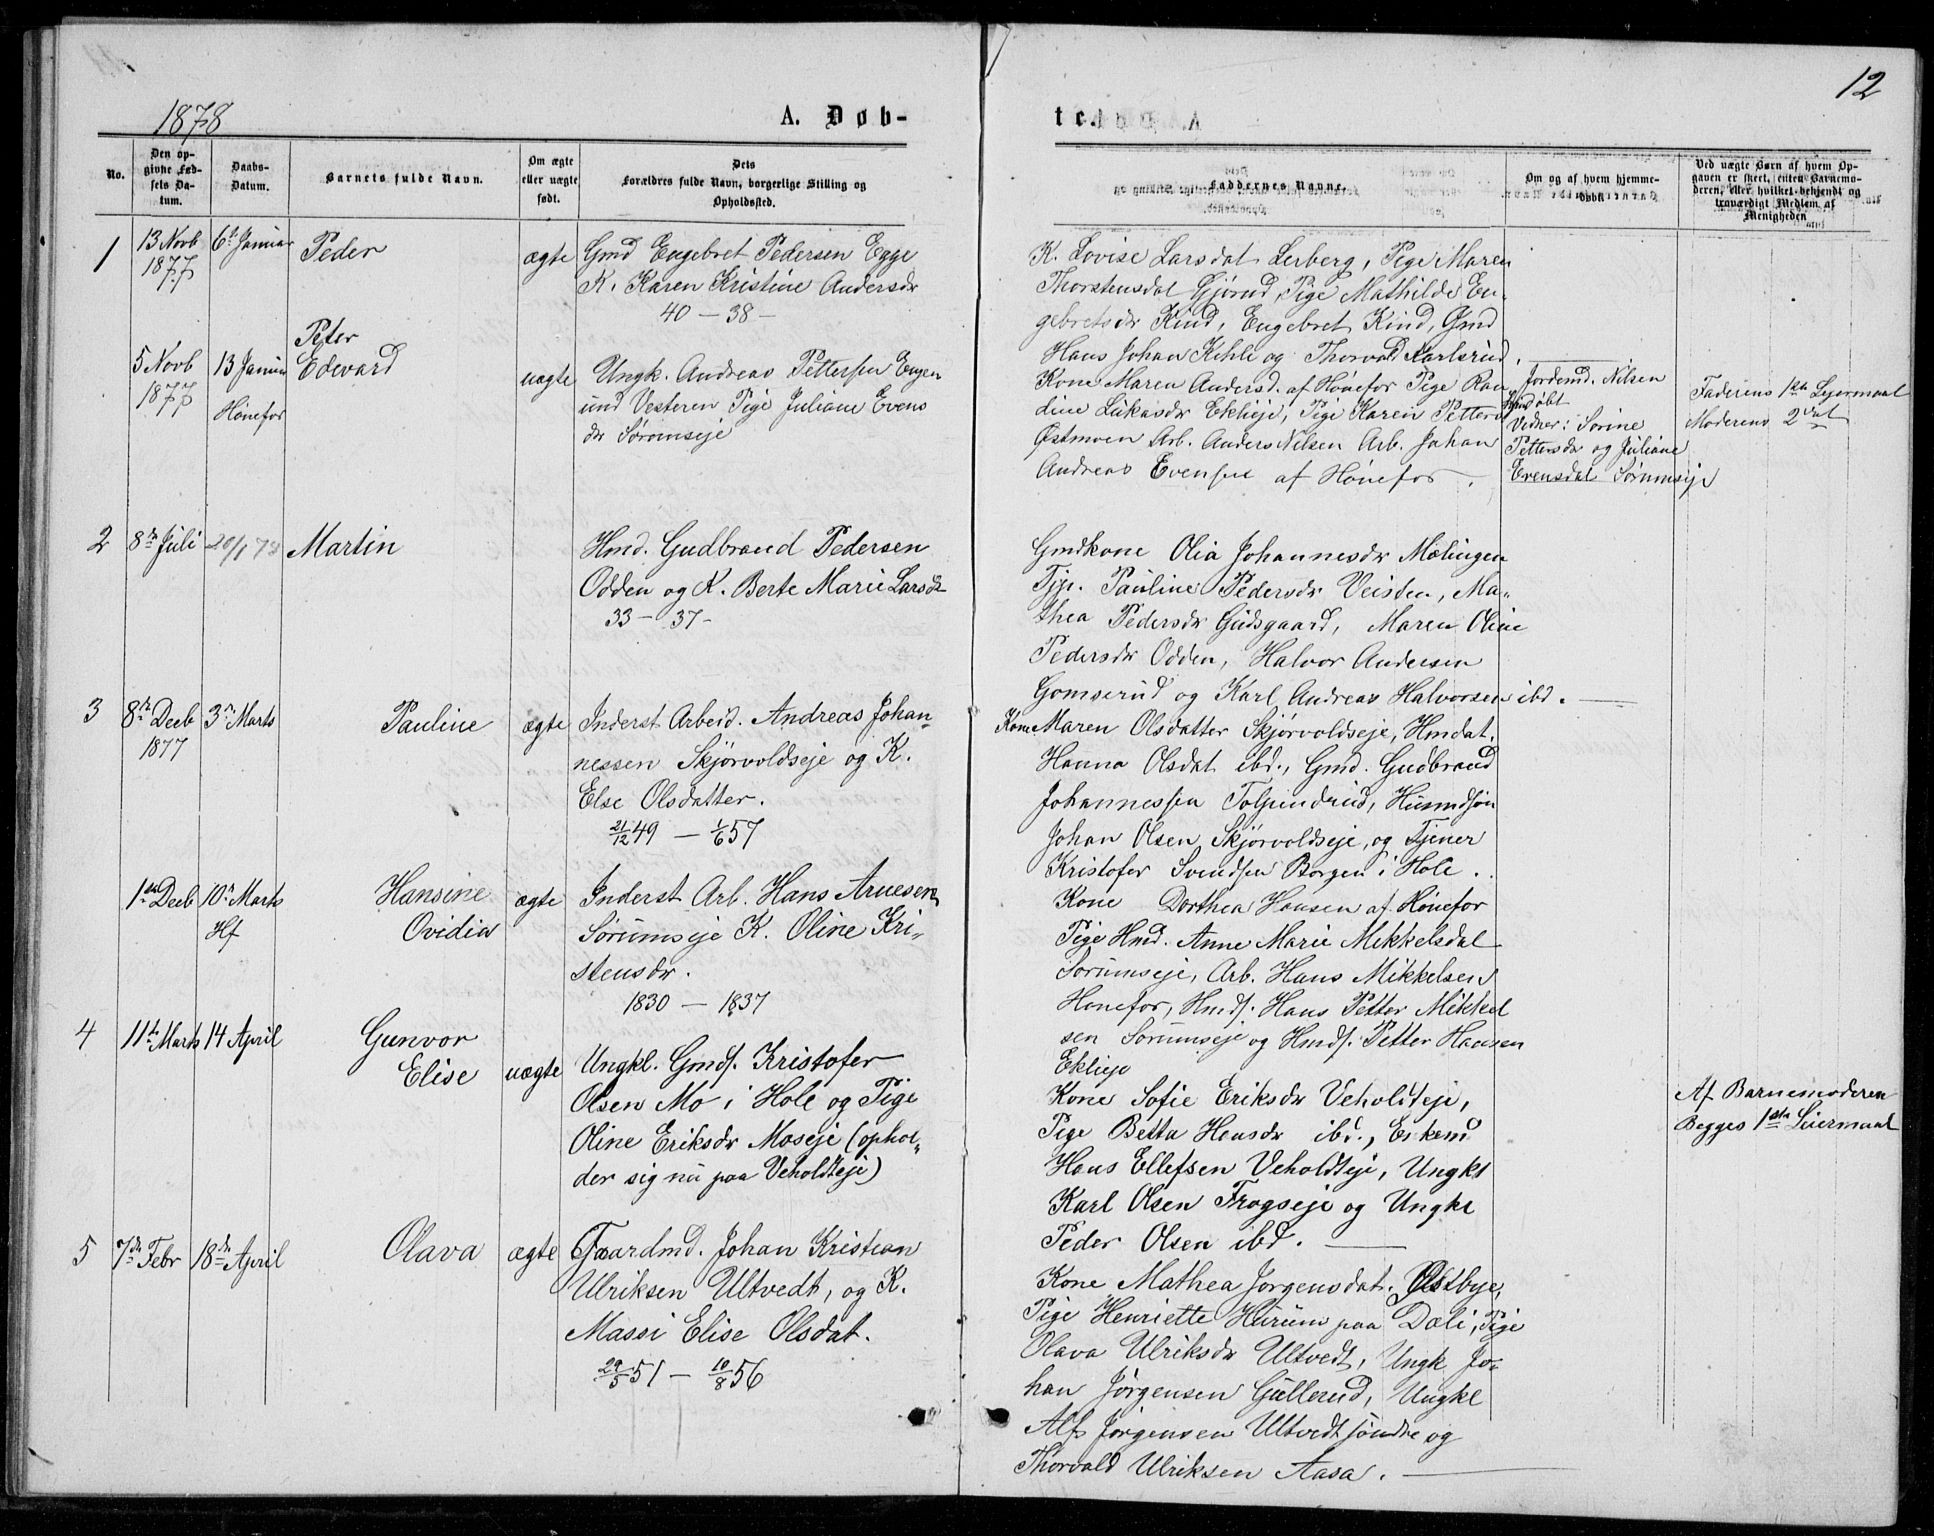 12
1878
A. Døb-
te.
No.
Den op-
givne Fød-
sels Da-
tum.
Daabs-
Datum.
Barnets fulde Navn.
Om ægte
eller uægte
født.
Dets
Forældres fulde Navn, borgerlige Stilling og
Opholdssted.
Faddernes Navne.
Om og af hvem hjemme-
døbt.
Ved uægte Børn af hvem Op-
gaven er skeet, enten Barnemo-
deren, eller hvilket bekjendt og
troværdigt Medlem af
Menigheden
1
13 Novb
1877
6te Januar
Peder
ægte
Gmd Engebret Pedersen Egge
K. Karen Kristine Andersdr
40 - 38 -
K. Lovise Larsdat Lerberg, Pige Maren
Thorstensdat Gjørud, Pige Mathilde En-
gebretsdr Kind, Engebret Kind, Gmd
Hans Johan Kihle og Thorvald Karlsrud.
5 Novb
1877
13 Januar
Hønefos
Peter
Edevard
uægte
Ungk. Andreas Pettersen Engen
und Vesteren Pige Juliane Evens
dr Sørumseje
Kone Maren Andersd. af Hønefos Pige Ran
dine Lukasdr Eklieje, Pige Karen Petters
Østmoen Arb. Anders Nilsen Arb. Johan
Andreas Evensen af Hønefos.
Jordemd. Nilsen
Hmdøbt
Vidner: Sorine
Pettersdr og Juliane
Evensdat Sørumseje
Faderens 1ste Lejermaal
Moderens 2det
2
8de Juli
20/1 78
Martin
Hmd. Gudbrand Pedersen
Odden og K. Berte Marie Larsdr
33 - 37 -
Gmdkone Olia Johannesdr Mælingen
Tjp. Pauline Pedersdr Veisten, Ma-
thea Pedersdr Gudsgaard, Maren Oline
Pedersdr Odden, Halvor Andersen
Gomserud og Karl Andreas Halvorsen ibd.
3
8de Decb
1877
3die Marts
Pauline
ægte
Inderst Arbeid. Andreas Johan-
nessen Skjørvoldseje og K.
Else Olsdatter.
21/12 49 - 1/6 57
Kone Maren Olsdatter Skjørvoldseje, Hmdat.
Hanna Olsdat ibd., Gmd. Gudbrand
Johannessen Tolpinrud, Husmdsøn
Johan Olsen Skjørvoldseje, og Tjener
Kristofer Svendsen Borgen i Hole.
1ste Decb
10de Marts
Hf
Hansine
Ovidia
ægte
Inderst Arb. Hans Arnesen
Sørumseje K. Oline Kri-
stensdr.
1830 - 1837
Kone Dorthea Hansen af Hønefos
Pige Hmd. Anne Marie Mikkelsdat
Sørumseje, Arb. Hans Mikkelsen
Hønefos, Hmds. Hans Petter Mikkel
sen Sørumseje og Hmds. Petter Hansen
Eklieje
4
11te Marts
14 April
Gunvor
Elise
uægte
Ungkl. Gmds. Kristofer
Olsen Mo i Hole og Pige
Oline Eriksdr Moseje (ophol-
der sig nu paa Veholdteje)
Kone Sofie Eriksdr Veholdteje,
Pige Betta Hansdr ibd., Enkemd
Hans Ellefsen Veholdteje, Ungkl
Karl Olsen Frogseje og Ungkl
Peder Olsen ibd.
Af Barnemoderen
Begges 1ste Leiermaal
5
7de Febr
18de April
Olava
ægte
Gaardmd. Johan Kristian
Ulriksen Ultvedt, og K.
Massi Elise Olsdat.
29/5 51 - 10/8 56
Kone Mathea Jørgensdat. Østbye,
Pige Henriette Hurum paa Dæli, Pige
Olava Ulriksdr Ultvedt, Ungk Jo-
han Jørgensen Gullerud, Ungkl
Alf Jørgensen Ultvedt søndre og
Thorvald Ulriksen Aasa.